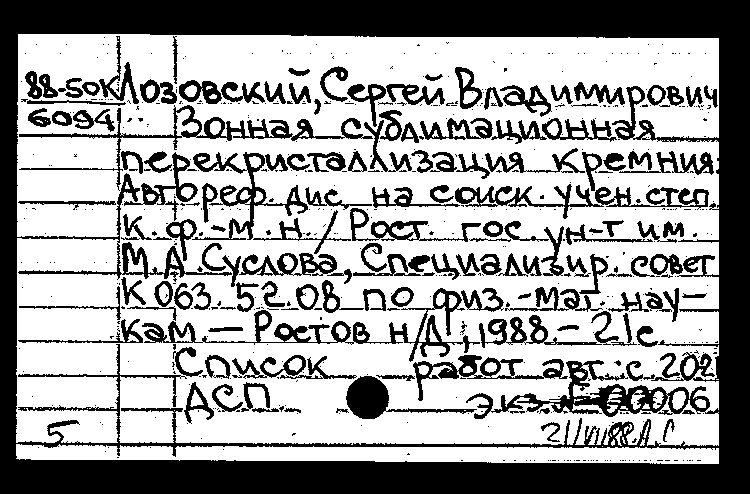 88-50К Лозовский, Сергей Владимирович
6094 Зонная сублимационная
перекристаллизация кремния:
Автореф. дис. на соиск. учен. степ.
К. ф.-м. н. / Рост. гос. ун-т им.
М.А. Суслова, Специализир. совет
К 063. 52. 08 по физ.-мат. нау-
кам. — Ростов н/Д, 1988. - 21с.
Список работ авт.: с. 20-21
ДСП экз. № 00006
5 21/VI 88 А.С.